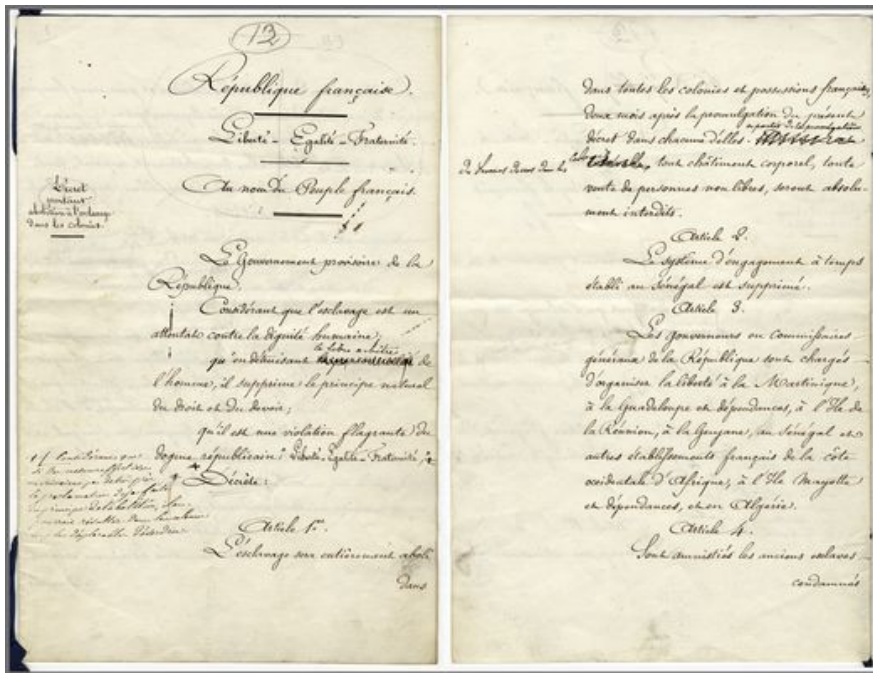 13
République française.
Liberté - Egalité - Fraternité.
Au nom du Peuple français.
Décret
portant
abolition de l'esclavage
dans les colonies.
Le Gouvernement provisoire de la
République,
Considérant que l'esclavage est un
attentat contre la dignité humaine;
le libre arbitre
qu'en détruisant de
l'homme, il supprime le principe naturel
du droit et du devoir;
qu'il est une violation flagrante du
dogme républicain: Liberté, Egalité - Fraternité;
+ Considérant que
si des mesures effectives
ne
la proclamation déjà faite
du principe de l'abolition, il en
pourrait résulter dans les colonies
les plus déplorables désordres
Décrète:
Article 1er.
L'esclavage sera entièrement aboli
dans
dans toutes les colonies et possessions françaises,
deux mois après la promulgation du présent
décret dans chacune d'elles.
à partir de la promulgation
du présent décret dans les colonies, tout châtiment corporel, toute
vente de personnes non libres, seront absolu-
ment interdits.
Article 2.
Le système d'engagement à temps
établi au Sénégal est supprimé.
Article 3.
Les gouverneurs ou Commissaires
généraux de la République sont chargés
d'organiser la liberté à la Martinique,
à la Guadeloupe et dépendances, à l'Ile de
la Réunion, à la Guyane, au Sénégal et
autres établissements français de la côte
occidentale d'Afrique, à l'Ile Mayotte
et dépendances, et en Algérie.
Article 4.
Sont amnistiés les anciens esclaves
condamnés